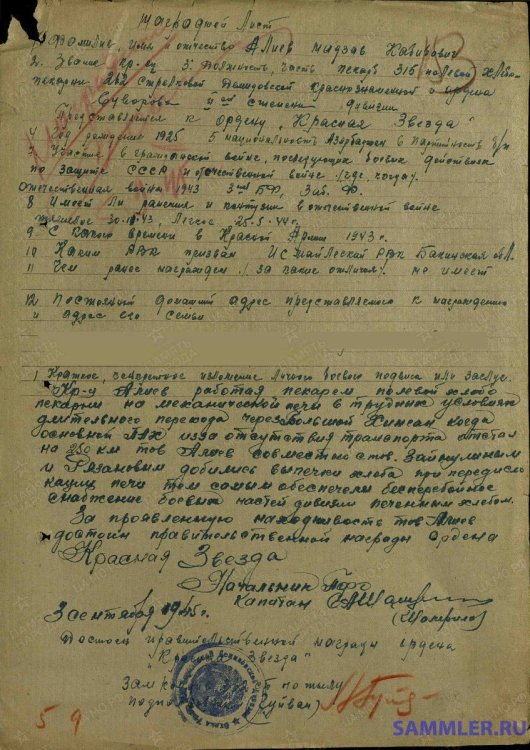 Наградной Лист
1. Фамилия, имя и отчество Алиев Мадзав Хабибович
2. Звание кр-ец 3. Должность, часть пекарь 315 полевой хлебо
пекарни 262 стрелковой Демидовской Краснознаменной и ордена
Суворова II ой степени дивизии
Представляется к ордену „Красная Звезда"
4 Год рождения 1925 5 национальность Азербаджан 6 Партийность б/п
7 Участие в гражданской войне, последующих боевых действиях
по защите СССР и отечественной войне (где, когда).
Отечественная война 1943 3ий БФ, Заб. Ф.
8 Имеет ли ранения и контузии в отечественной войне
тяжелое 30.10.43, Легкое 25.5.44г.
9 С какого времени в Красной Армии 1943 г.
10 Каким РВК призван Исмайлеский РВК Бакинская обл.
11 Чем ранее награжден (за какие отличия). не имеет
12 Постоянный домашний адрес представляемого к награждению
и адрес его семьи
1 Краткое, конкретное изложение личного боевого подвига или заслуг.
Кр-ц Алиев работая пекарем полевой хлебо
пекарни на механической печи в трудных условиях
длительного перехода через большой Хинган когда
основной ПАХ из за отсутствия транспорта отстал
на 250 км тов Алиев совместно с тов.
и Рязановым добились выпечки хлеба при передисло
кациях печи тем самым обеспечели бесперебойное
снабжение боевых частей дивизии печенным хлебом.
За проявленную находчивость тов Алиев
достоин правительственной награды ордена
Красная Звезда
Начальник ПФС
капитан
3 сентября 1945 г.
Достоин правительственной награды ордена
"Красная Звезда"
Зам по тылу
59
SAMMLER.RU